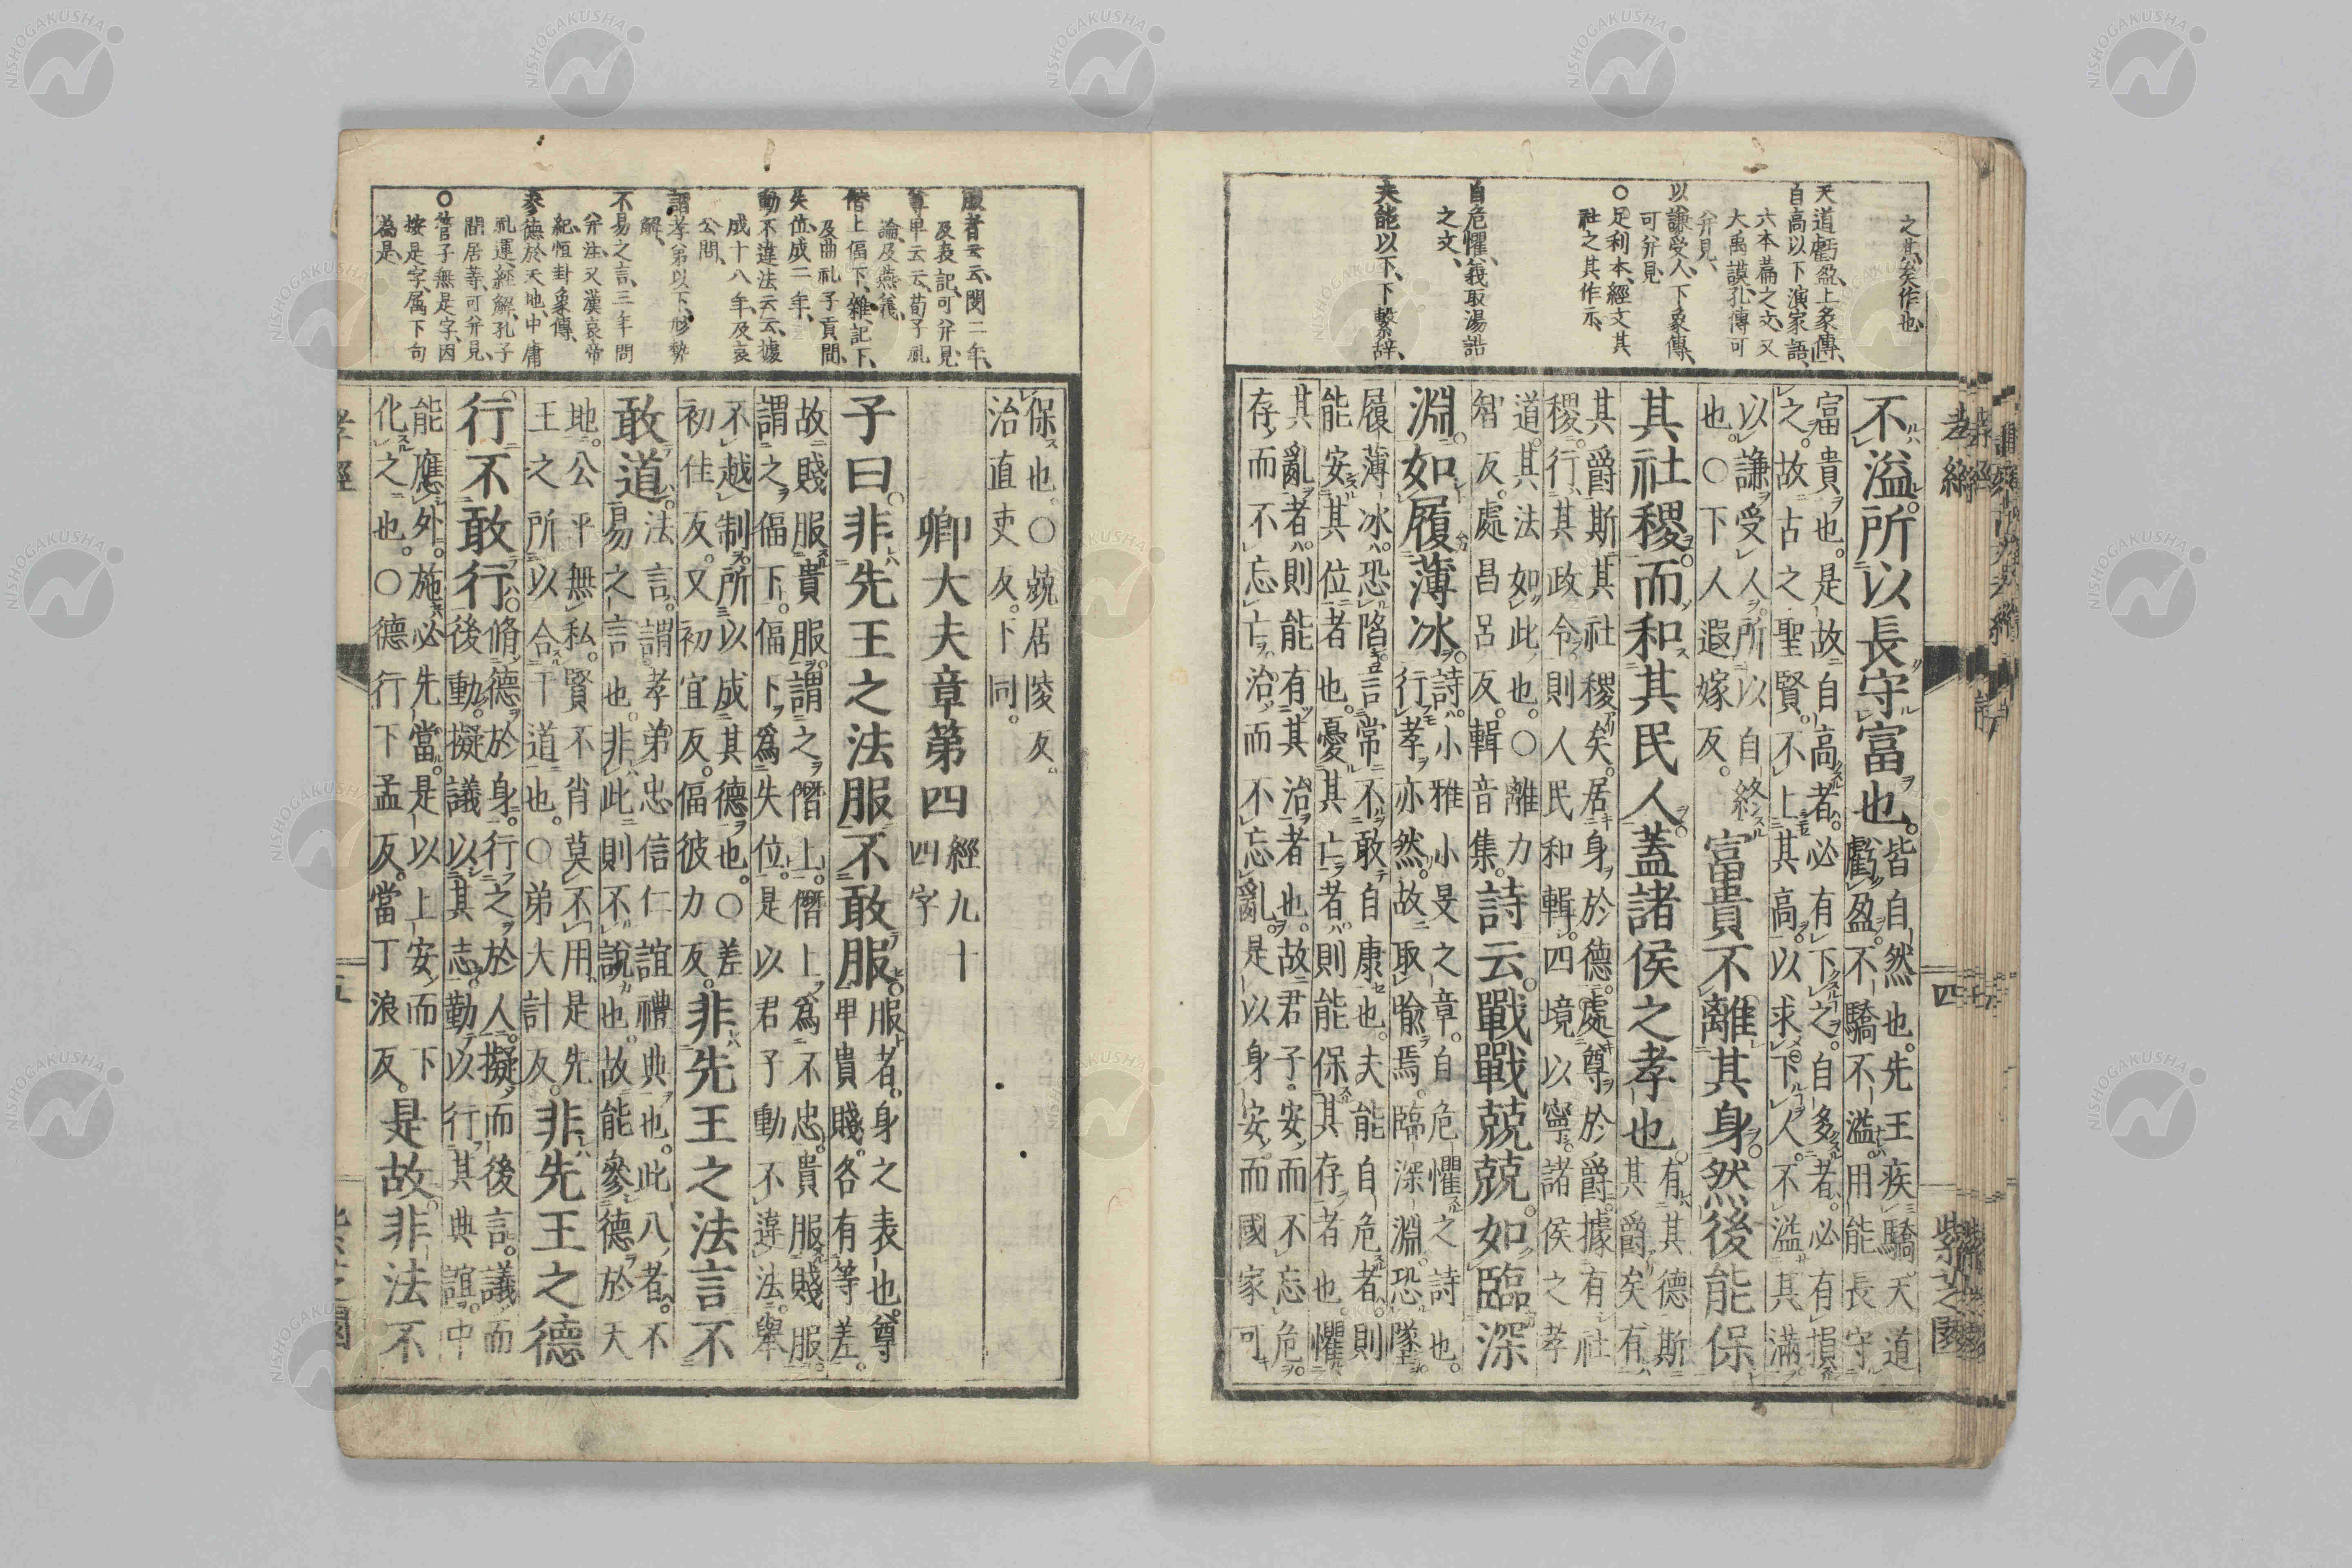 之其矣作也
天道虧盈上彖傳
自高以下演家語
六本篇之文又
大禹謨孔傳可
弁見
以謙受人下彖傳
可弁見
○足利本經文其
社之其作示
自危懼義取湯誥
之文
夫能以下下繫辞
不溢所以長守富也皆自然也先王疾驕天道
虧盈不驕不溢用能長守
富貴也是故自高者必有下之自多者必有損
之故古之聖賢不上其高以求下人不溢其滿
以謙受人所以自終
也○下人遐嫁反
富貴不離其身然後能保
其社稷而和其民人蓋諸侯之孝也有其德斯
其爵矣有
其爵斯其社稷矣居身於德處尊於爵據有社
稷行其政令則人民和輯四境以寧諸侯之孝
道其法如此也○離力
智反處昌呂反輯音集
詩云戰戰兢兢如臨深
淵如履薄冰詩小雅小旻之章自危懼之詩也
行孝亦然故取喩焉臨深淵恐墜
履薄冰恐陷言常不敢自康也夫能自危者則
能安其位者也憂其亡者則能保其存者也懼
其亂者則能有其治者也故君子安而不忘危
存而不忘亡治而不忘亂是以身安而國家可
四
紫芝園
服者云云閔二年
及表記可弁見
尊卑云云荀子礼
論及燕義
僭上偪下雜記下
及曲礼子貢問
失位成二年
動不違法云云據
成十八年及哀
公問
謂孝弟以下形勢
解
不易之言三年問
弁注又漢哀帝
紀恒卦彖傳
參德於天地中庸
礼運經解孔子
閒居等可弁見
○管子無是字因
按是字属下句
為是
保也○兢居陵反
治直吏反下同
卿大夫章第四經九十
四字
子曰非先王之法服不敢服服者身之表也尊
卑貴賤各有等差
故賤服貴服謂之僭上僭上爲不忠貴服賤服
謂之偪下偪下爲失位是以君子動不違法舉
不越制所以成其德也○差
初佳反又初宜反偪彼力反
非先王之法言不
敢道法言謂孝弟忠信仁誼禮典也此八者不
易之言也非此則不說也故能參德於天
地公平無私賢不肖莫不用是先
王之所以合于道也○弟大計反
非先王之德
行不敢行脩德於身行之於人擬而後言議而
後動擬議以其志動以行其典誼中
能應外施必先當是以上安而下
化之也○德行下孟反當丁浪反
是故非法不
孝經
五